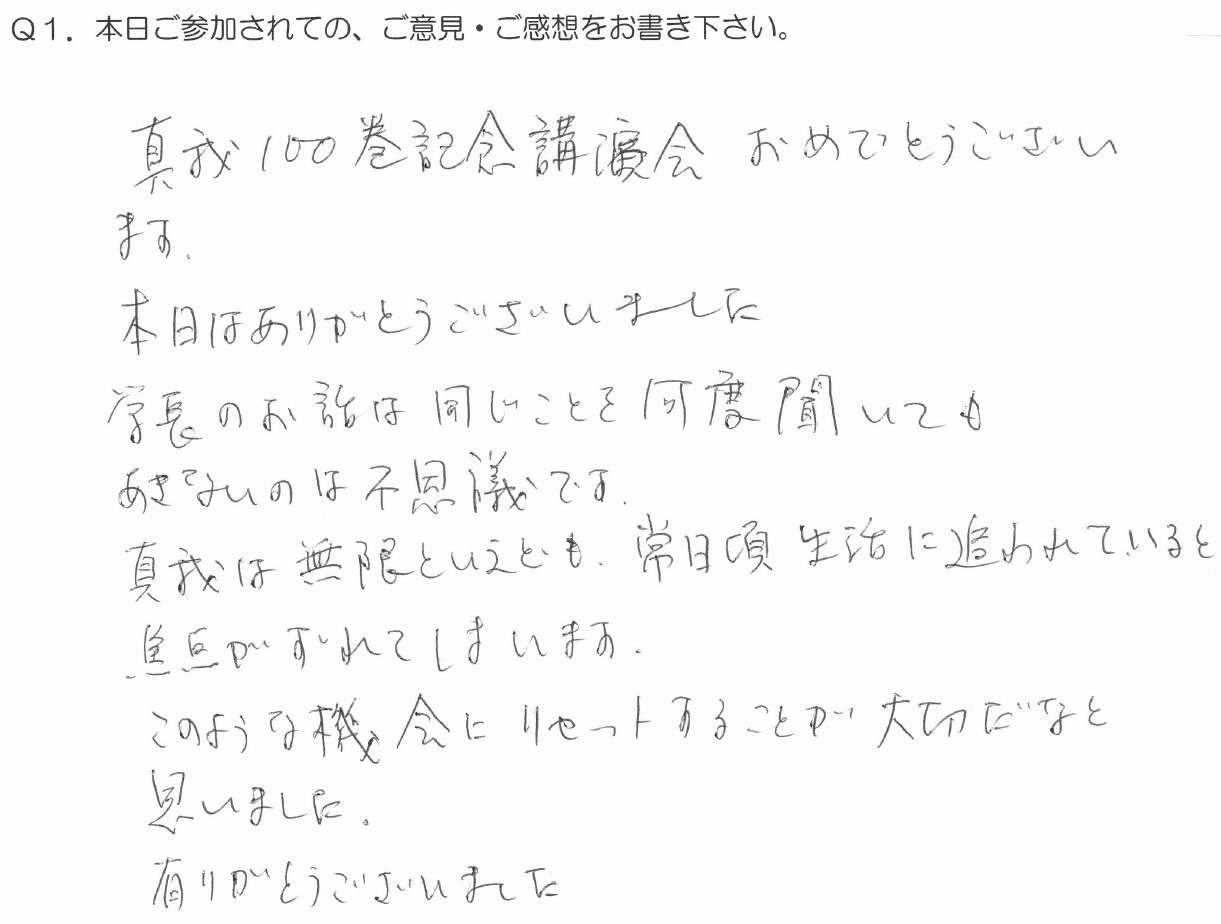 Q1．本日ご参加されての、ご意見・ご感想をお書き下さい。
真我100巻記念講演会 おめでとうござい
ます.
本日はありがとうございました
学長のお話は同じことを何度聞いても
あきないのは不思議です.
真我は無限といえども、常日頃 生活に追われていると
焦点がずれてしまいます.
このような機会にリセットすることが大切だなと
思いました.
有りがとうございました